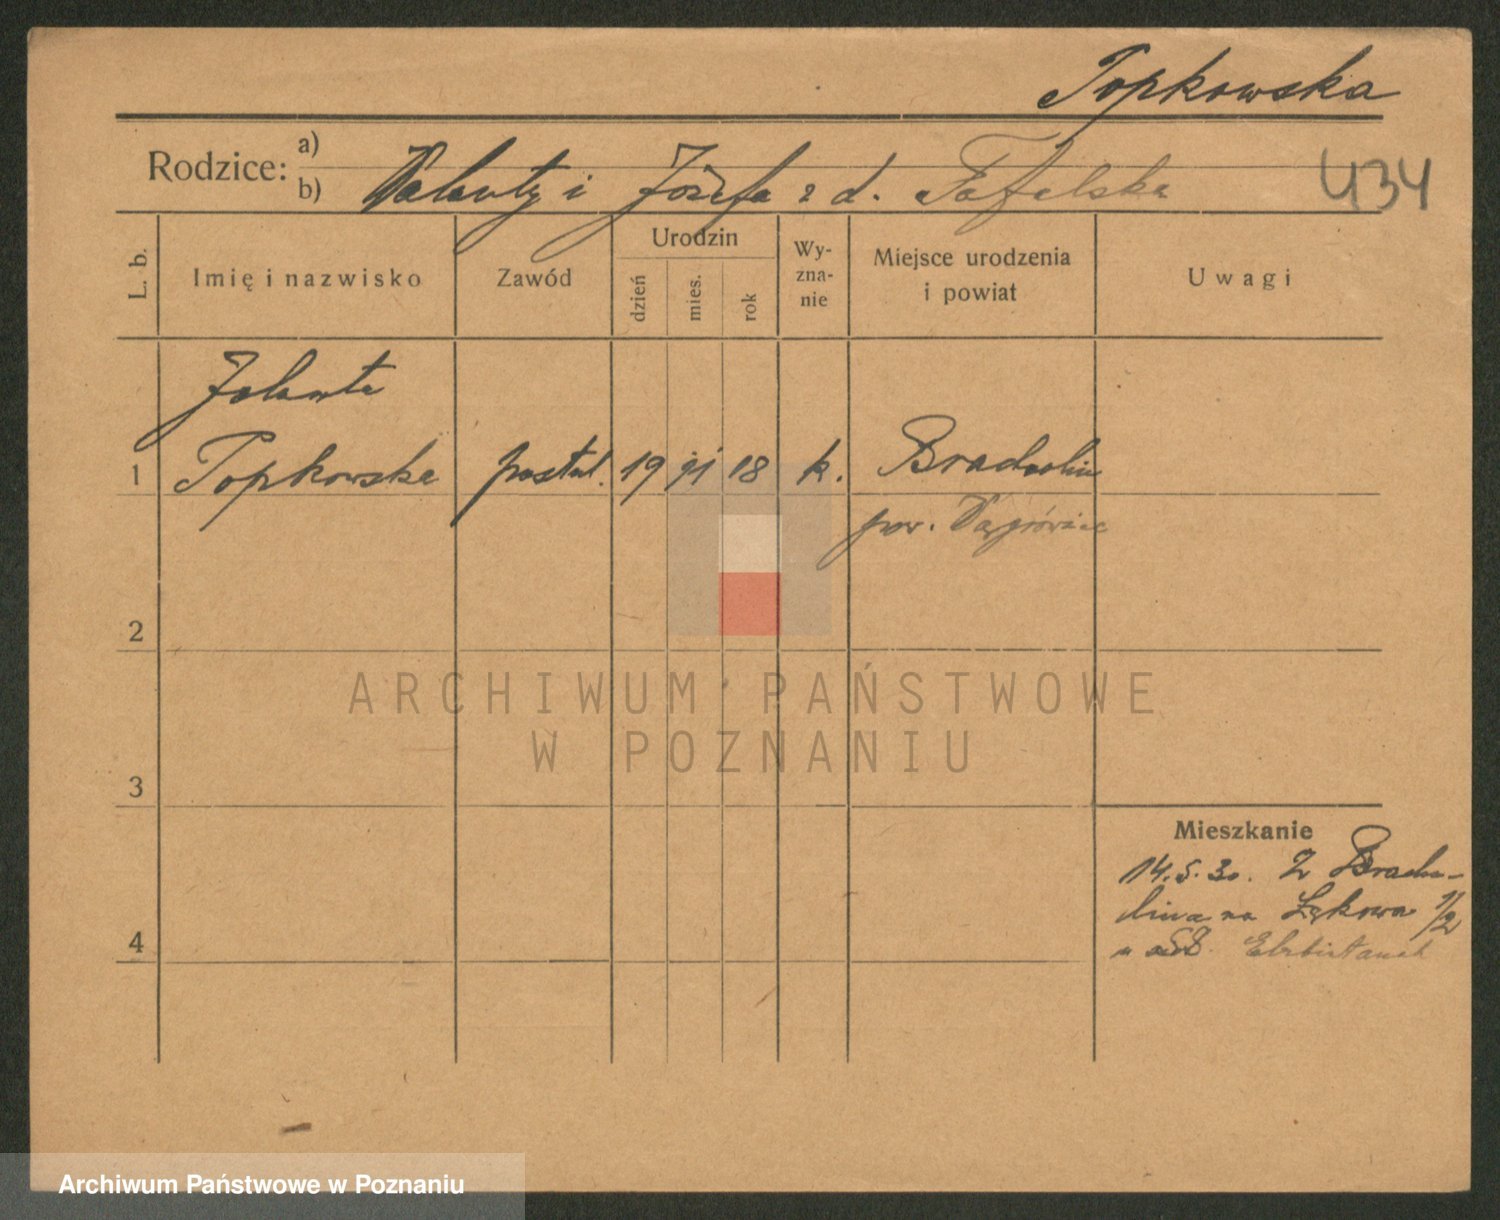 Topkowska
Rodzice: a)
b) Walenty i Józefa z d. Tafelska
434
L. b.
Imię i nazwisko
Zawód
Urodzin
dzień
mies.
rok
Wy-
zna-
nie
Miejsce urodzenia
i powiat
Uwagi
Jolanta
1 Topkowska postul. 19 VI 18 k.
pow. Wągrówiec
2
3
4
Mieszkanie
14.5.30. z
na Łąkowa 1/2
u SS. Elżbietanek
ARCHIWUM PAŃSTWOWE
W POZNANIU
Archiwum Państwowe w Poznaniu